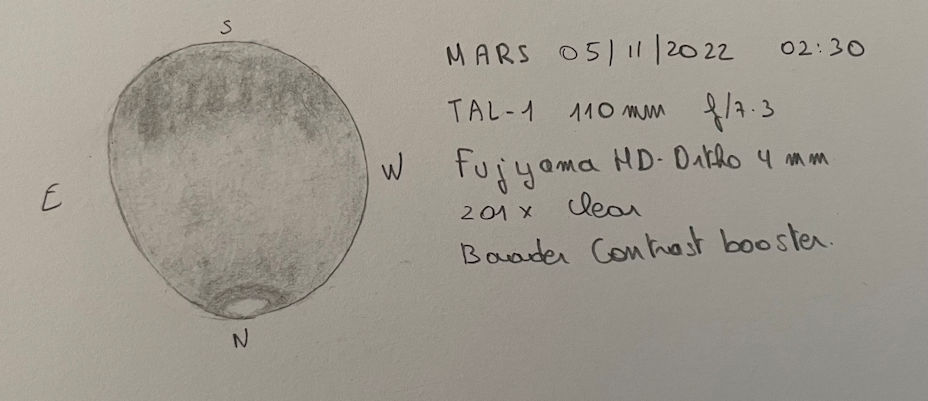 S
MARS 05/11/2022 02:30
TAL-1 110 mm f/7.3
W
Fujyama HD-Ortho 4 mm
E
201x Clear
Baader Contrast booster.
N